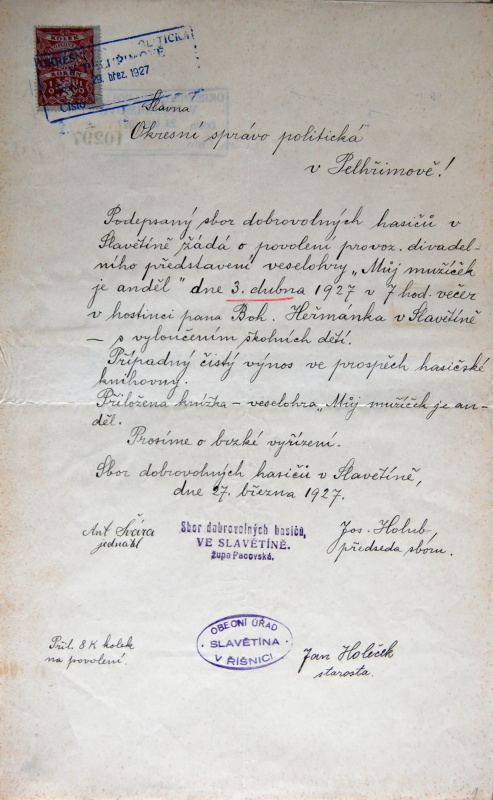 KOLEK
OKRESNÍ
POLITICKÁ
29. břez. 1927
Číslo
Slavná
Okresní správo politická
v Pelhřimově!
Podepsaný sbor dobrovolných hasičů v
Slavětíně žádá o povolení provoz. divadel-
ního představení veselohry „Můj mužíček
je anděl" dne 3. dubna 1927 v 7 hod. večer
v hostinci pana Boh. Heřmánka v Slavětíně
– s vyloučením školních dětí.
Případný čistý výnos ve prospěch hasičské
knihovny.
Přiložena knížka – veselohra „Můj mužíček je an-
děl.
Prosíme o brzké vyřízení.
Sbor dobrovolných hasičů v Slavětíně,
dne 27. března 1927.
Ant Švára
jednatel
Sbor dobrovolných hasičů,
VE SLAVĚTÍNĚ.
župa Pacovská.
Jos. Holub,
předseda sboru.
Příl. 8 K kolek
na povolení.
OBECNÍ ÚŘAD
SLAVĚTÍNA
V ŘÍŠNICI
Jan Holeček
starosta.